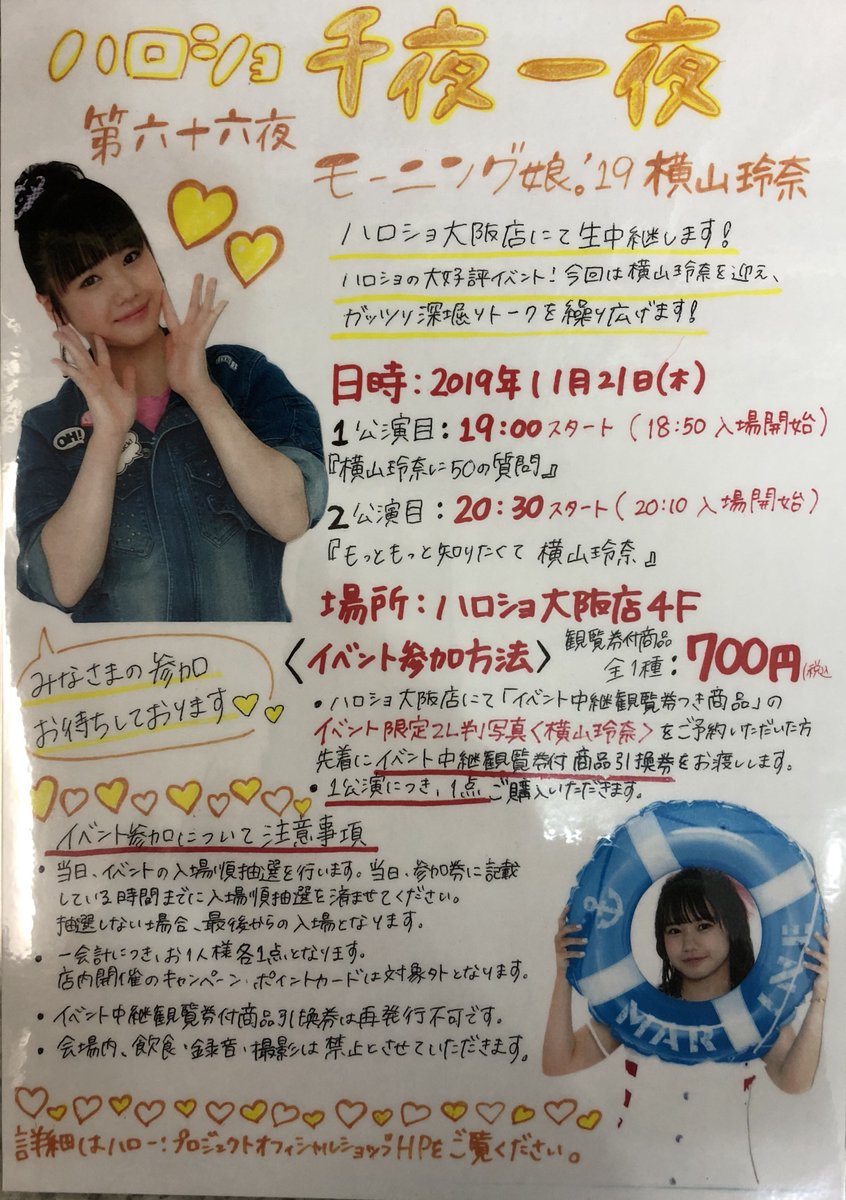 ハロショ 千夜一夜
第六十六夜
モーニング娘。'19 横山玲奈
ハロショ大阪店にて生中継します!
ハロショの大好評イベント!今回は横山玲奈を迎え、
ガッツリ深堀りトークを繰り広げます!
日時:2019年11月21日(木)
1公演目:19:00スタート(18:50入場開始)
『横山玲奈に50の質問』
2公演目:20:30スタート(20:10入場開始)
『もっともっと知りたくて 横山玲奈』
場所:ハロショ大阪店4F
みなさまの参加
お待ちしております
〈イベント参加方法〉
観覧券付商品
全1種:700円(税込
・ハロショ大阪店にて「イベント中継観覧券つき商品」の
イベント限定2L判写真〈横山玲奈〉をご予約いただいた方
先着にイベント中継観覧券付商品引換券をお渡しします。
・1公演につき、1点ご購入いただきます。
イベント参加について注意事項
・当日、イベントの入場順抽選を行います。当日、参加券に記載
している時間までに入場順抽選を済ませてください。
抽選しない場合、最後からの入場となります。
・一会計につき、お1人様各1点となります。
店内開催のキャンペーン・ポイントカードは対象外となります。
・イベント中継観覧券付商品引換券は再発行不可です。
・会場内、飲食・録音・撮影は禁止とさせていただきます。
詳細はハロー!プロジェクトオフィシャルショップHPをご覧ください。
OH!
MAR
LINE